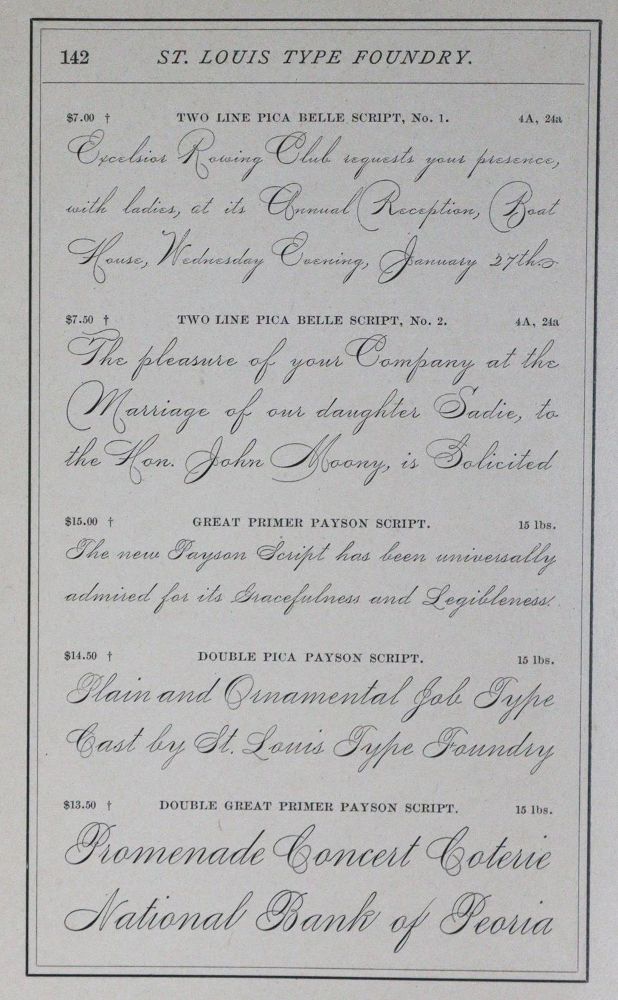 142 ST. LOUIS TYPE FOUNDRY.
$7.00 † TWO LINE PICA BELLE SCRIPT, No. 1. 4A, 24a
Excelsior Rowing Club requests your presence,
with ladies, at its Annual Reception, Boat
House, Wednesday Evening, January 27th.
$7.50 † TWO LINE PICA BELLE SCRIPT, No. 2. 4A, 24a
The pleasure of your Company at the
Marriage of our daughter Sadie, to
the Hon. John Moony, is Solicited
$15.00 † GREAT PRIMER PAYSON SCRIPT. 15 lbs.
The new Payson Script has been universally
admired for its Gracefulness and Legibleness.
$14.50 † DOUBLE PICA PAYSON SCRIPT. 15 lbs.
Plain and Ornamental Job Type
Cast by St. Louis Type Foundry
$13.50 † DOUBLE GREAT PRIMER PAYSON SCRIPT. 15 lbs.
Promenade Concert Coterie
National Bank of Peoria